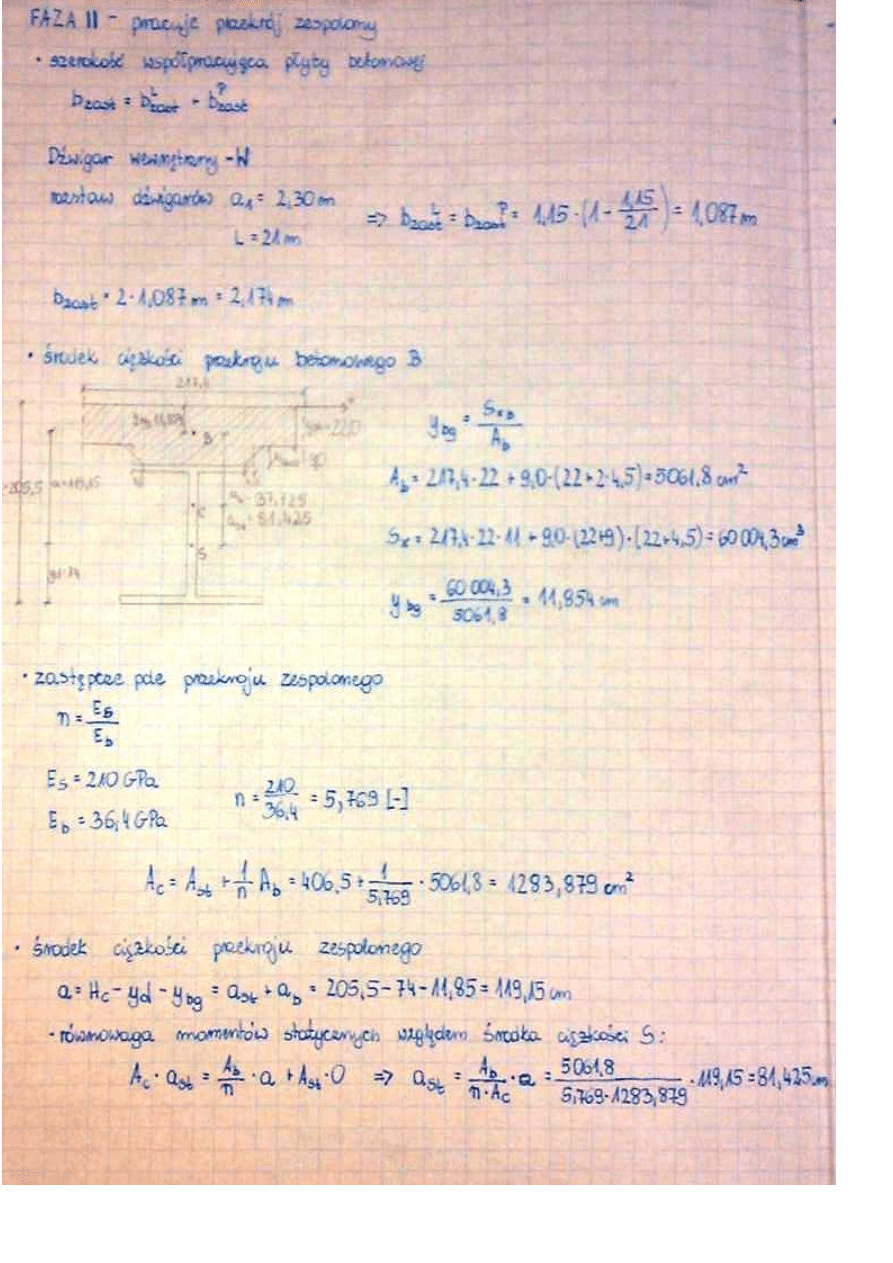 FAZA II - pracuje przekrój zespolony
• szerokość współpracująca płyty betonowej
b_zast = b^L_zast + b^P_zast
Dźwigar wewnętrzny - W
rozstaw dźwigarów a_1 = 2,30 m
L = 21 m
=> b_zast^L = b_zast^P = 1,15 · (1 - 1,15/21) = 1,087 m
b_zast = 2 · 1,087 m = 2,174 m
• środek ciężkości przekroju betonowego B
217,4
B
22,0
9,0
205,5
37,725
a_st = 81,425
C
S
y_bg = S_xb / A_b
A_b = 217,4 · 22 + 9,0 · (22 + 2 · 4,5) = 5061,8 cm²
S_x = 217,4 · 22 · 11 + 9,0 · (22+9) · (22+4,5) = 60 004,3 cm³
y_bg = 60 004,3 / 5061,8 = 11,854 cm
• zastępcze pole przekroju zespolonego
n = E_s / E_b
E_s = 210 GPa
E_b = 36,4 GPa
n = 210 / 36,4 = 5,769 [-]
A_c = A_st + 1/n A_b = 406,5 + 1/5,769 · 5061,8 = 1283,879 cm²
• środek ciężkości przekroju zespolonego
a = H_c - yd - y_bg = a_st + a_b = 205,5 - 74 - 11,85 = 119,15 cm
- równowaga momentów statycznych względem środka ciężkości S:
A_c · a_st = A_b/n · a + A_st · 0 => a_st = A_b / (n · A_c) · a = 5061,8 / (5,769 · 1283,879) · 119,15 = 81,425 cm